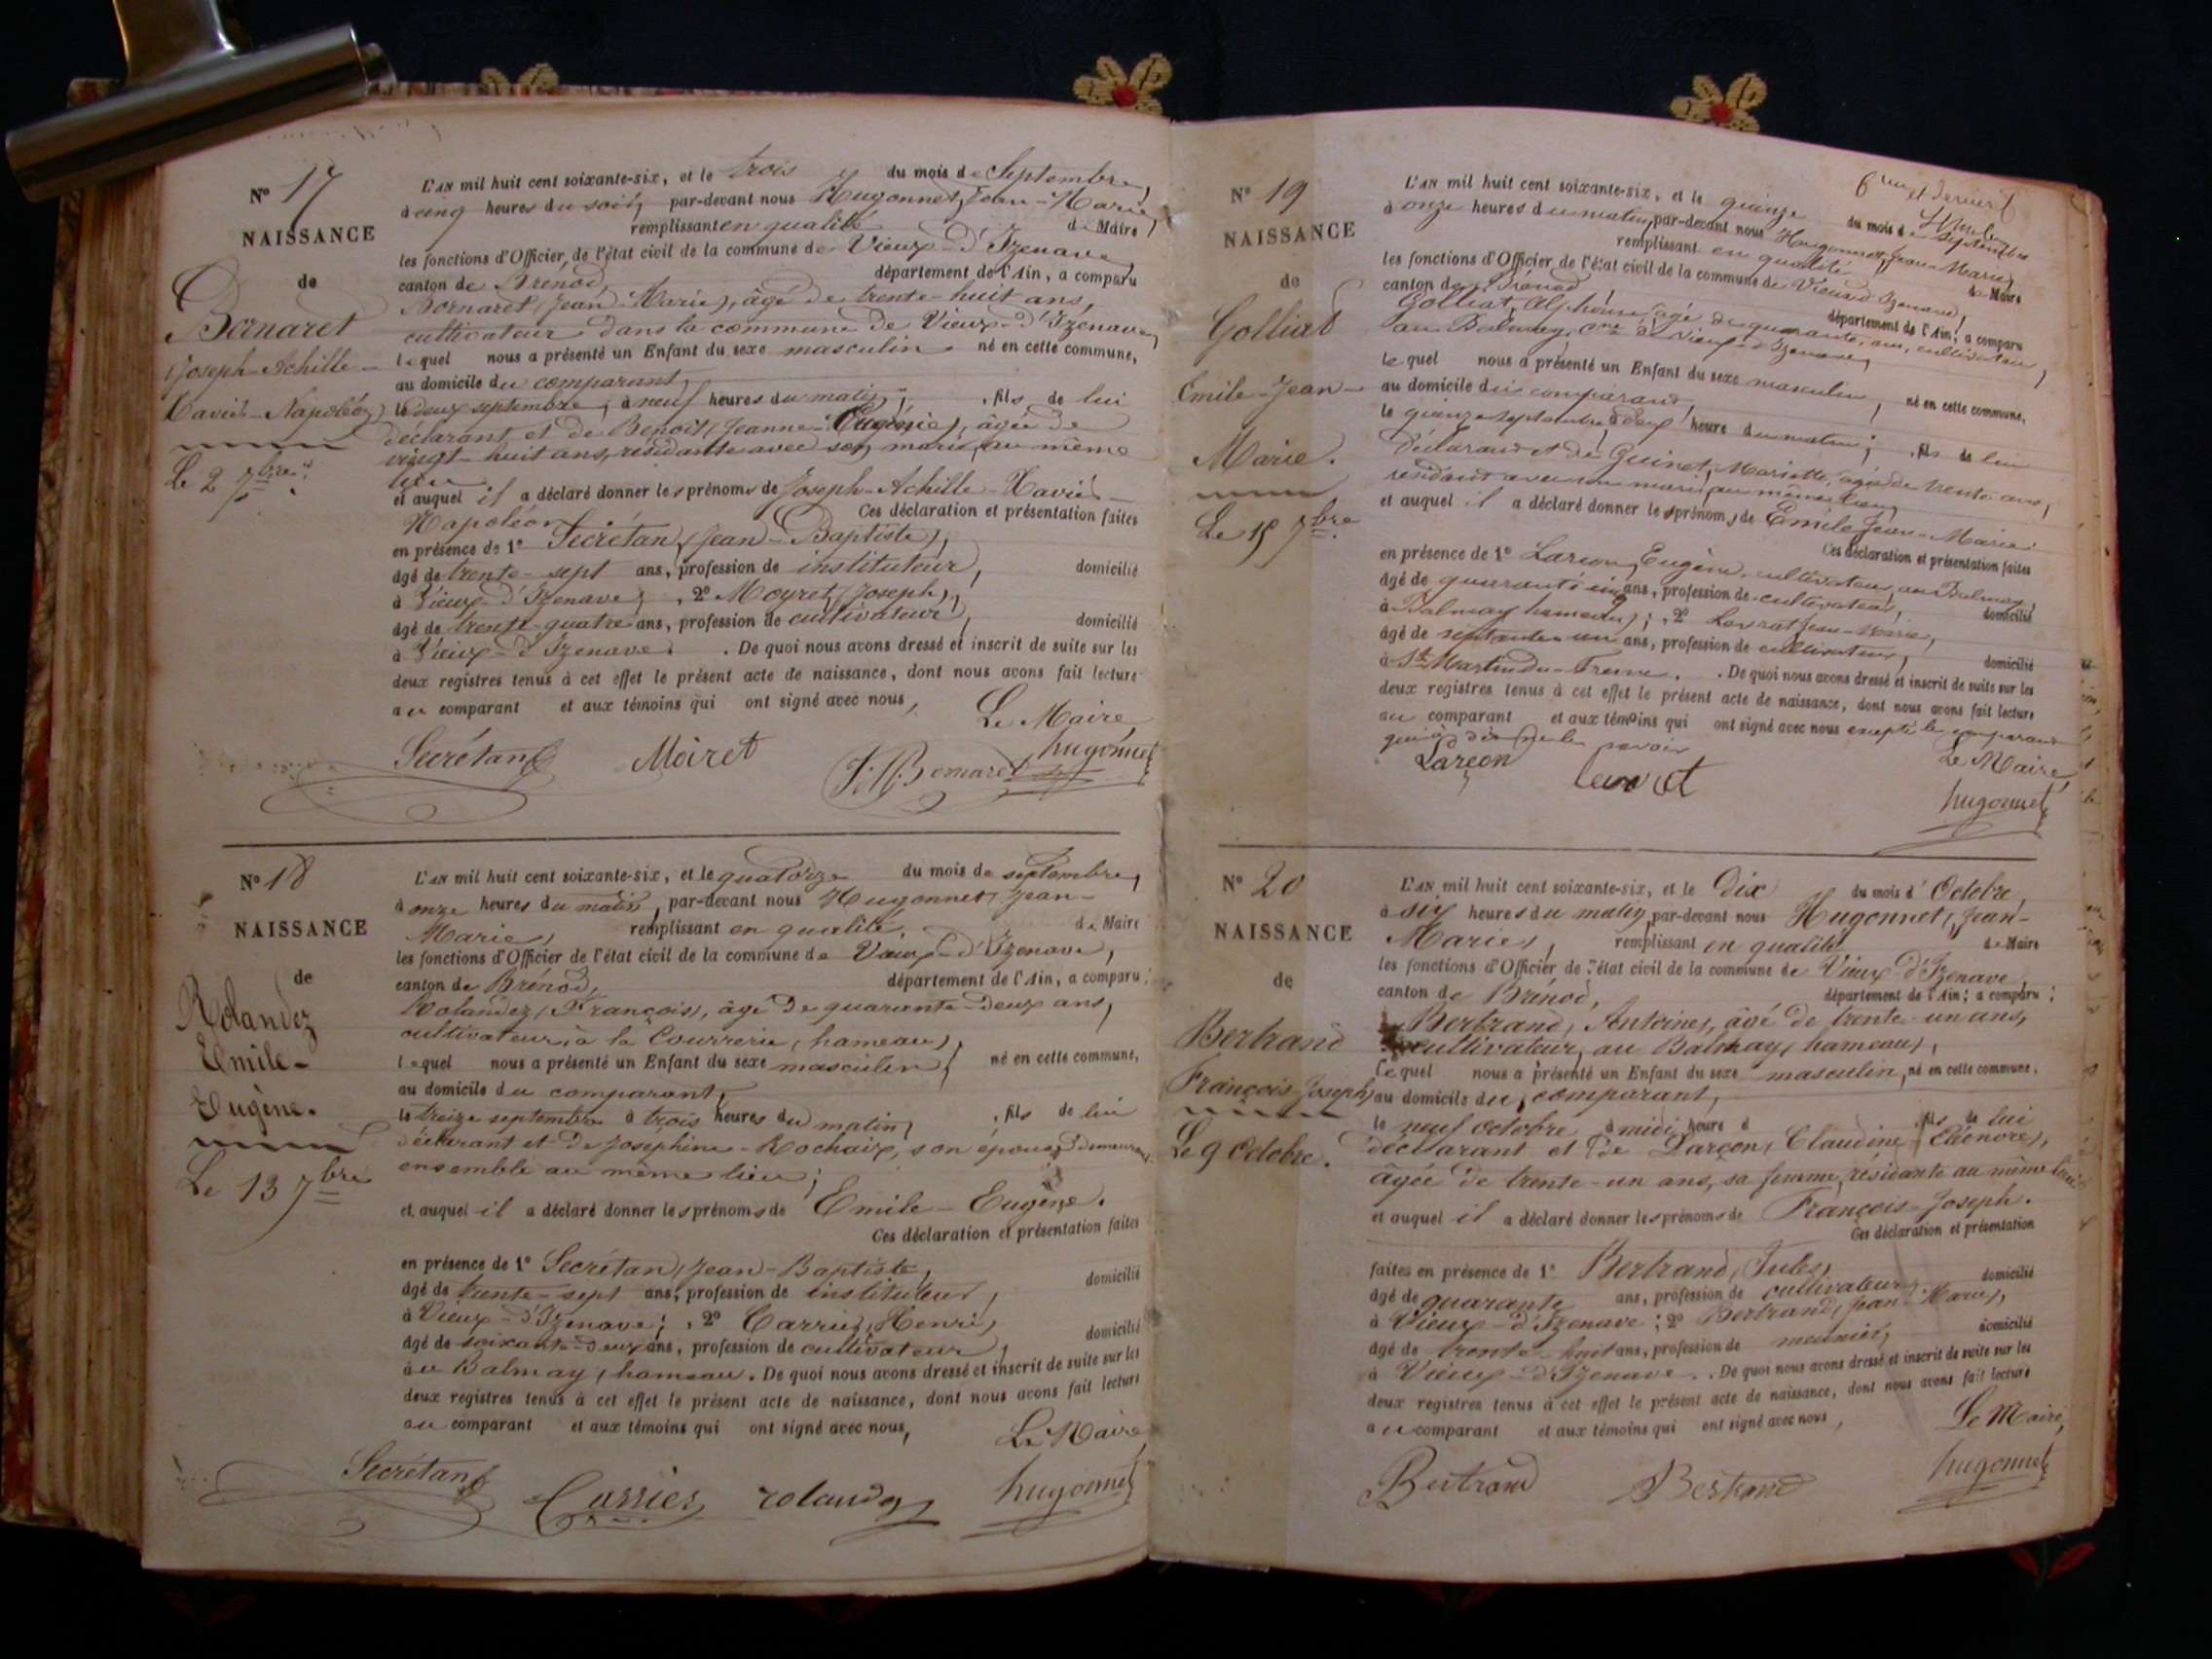 N° 17
NAISSANCE
de
Bornaret
Joseph-Achille-
Xavier-Napoléon
Le 2 7bre
L'AN mil huit cent soixante-six, et le trois du mois de Septembre,
à cinq heures du soir, par-devant nous Hugonnet, Jean-Marie,
remplissant en qualité de Maire
les fonctions d'Officier de l'état civil de la commune de Vieux-d'Izenave,
canton de Brénod, département de l'Ain, a comparu
Bornaret (Jean-Marie), âgé de trente-huit ans,
cultivateur dans la commune de Vieux-d'Izenave,
lequel nous a présenté un Enfant du sexe masculin né en cette commune,
au domicile du comparant,
le deux septembre, à neuf heures du matin, fils de lui
déclarant et de Benoit (Jeanne-Eugénie), âgée de
vingt-huit ans, résidante avec son mari, au même
lieu
et auquel il a déclaré donner les prénoms de Joseph-Achille-Xavier-
Napoléon. Ces déclaration et présentation faites
en présence de 1° Secrétan (Jean-Baptiste),
âgé de trente-sept ans, profession de instituteur, domicilié
à Vieux-d'Izenave; 2° Moyret (Joseph),
âgé de trente-quatre ans, profession de cultivateur, domicilié
à Vieux-d'Izenave. De quoi nous avons dressé et inscrit de suite sur les
deux registres tenus à cet effet le présent acte de naissance, dont nous avons fait lecture
au comparant et aux témoins qui ont signé avec nous,
Le Maire
Secrétan Moiret J. M. Bornaret hugonnet
N° 18
NAISSANCE
de
Rolandez
Emile-
Eugène.
Le 13 7bre
L'AN mil huit cent soixante-six, et le quatorze du mois de septembre,
à onze heures du matin, par-devant nous Hugonnet, Jean-
Marie, remplissant en qualité de Maire
les fonctions d'Officier de l'état civil de la commune de Vieux-d'Izenave,
canton de Brénod, département de l'Ain, a comparu
Rolandez (François), âgé de quarante-deux ans,
cultivateur, à la Courrerie (hameau),
lequel nous a présenté un Enfant du sexe masculin, né en cette commune,
au domicile du comparant,
le treize septembre à trois heures du matin, fils de lui
déclarant et de Josephine Rochaix, son épouse, demeurant
ensemble au même lieu;
et auquel il a déclaré donner les prénoms de Emile-Eugène.
Ces déclaration et présentation faites
en présence de 1° Secrétan, Jean-Baptiste,
âgé de trente-sept ans, profession de instituteur, domicilié
à Vieux-d'Izenave; 2° Carrier, Henri,
âgé de soixante-deux ans, profession de cultivateur, domicilié
au Balmay, hameau. De quoi nous avons dressé et inscrit de suite sur les
deux registres tenus à cet effet le présent acte de naissance, dont nous avons fait lecture
au comparant et aux témoins qui ont signé avec nous,
Le Maire
Secrétan Carrier rolandez hugonnet
6me et dernier f
N° 19
NAISSANCE
de
Golliat
Emile-Jean-
Marie.
Le 15 7bre
L'AN mil huit cent soixante-six, et le quinze du mois de Septembre
à onze heures du matin, par-devant nous Hugonnet, Jean-Marie,
remplissant en qualité de Maire
les fonctions d'Officier de l'état civil de la commune de Vieux d'Izenave,
canton de Brénod, département de l'Ain; a comparu
Golliat, Alphonse, âgé de quarante ans, cultivateur
au Balmay, cne de Vieux d'Izenave,
lequel nous a présenté un Enfant du sexe masculin, né en cette commune,
au domicile du comparant,
le quinze septembre à deux heure du matin; fils de lui
déclarant et de Guinet, Mariette, âgée de trente ans,
résidant avec son mari au même lieu,
et auquel il a déclaré donner les prénoms de Emile Jean-Marie.
Ces déclaration et présentation faites
en présence de 1° Larçon, Eugène, cultivateur, au Balmay,
âgé de quarante cinq ans, profession de cultivateur, domicilié
à Balmay hameau; 2° Levrat, Jean-Marie,
âgé de septante un ans, profession de cultivateur, domicilié
à St Martin du Frene. De quoi nous avons dressé et inscrit de suite sur les
deux registres tenus à cet effet le présent acte de naissance, dont nous avons fait lecture
au comparant et aux témoins qui ont signé avec nous excepté le comparant
qui a dit ne le savoir
Le Maire,
Larçon Levrat hugonnet
N° 20
NAISSANCE
de
Bertrand
François Joseph,
Le 9 Octobre.
L'AN mil huit cent soixante-six, et le Dix du mois d'Octobre,
à six heures du matin, par-devant nous Hugonnet, Jean-
Marie, remplissant en qualité de Maire
les fonctions d'Officier de l'état civil de la commune de Vieux-d'Izenave,
canton de Brénod, département de l'Ain; a comparu;
Bertrand, Antoine, âgé de trente-un ans,
cultivateur, au Balmay, hameau,
lequel nous a présenté un Enfant du sexe masculin, né en cette commune,
au domicile du comparant,
le neuf octobre à midi heure d fils de lui
déclarant et de Larçon, Claudine Eléonore,
âgée de trente-un ans, sa femme, résidante au même lieu;
et auquel il a déclaré donner les prénoms de François-Joseph.
Ces déclaration et présentation
faites en présence de 1° Bertrand, Jules,
âgé de quarante ans, profession de cultivateur, domicilié
à Vieux-d'Izenave; 2° Bertrand, Jean-Marie,
âgé de trente-huit ans, profession de meunier, domicilié
à Vieux-d'Izenave. De quoi nous avons dressé et inscrit de suite sur les
deux registres tenus à cet effet le présent acte de naissance, dont nous avons fait lecture
au comparant et aux témoins qui ont signé avec nous,
Le Maire,
Bertrand Bertrand hugonnet